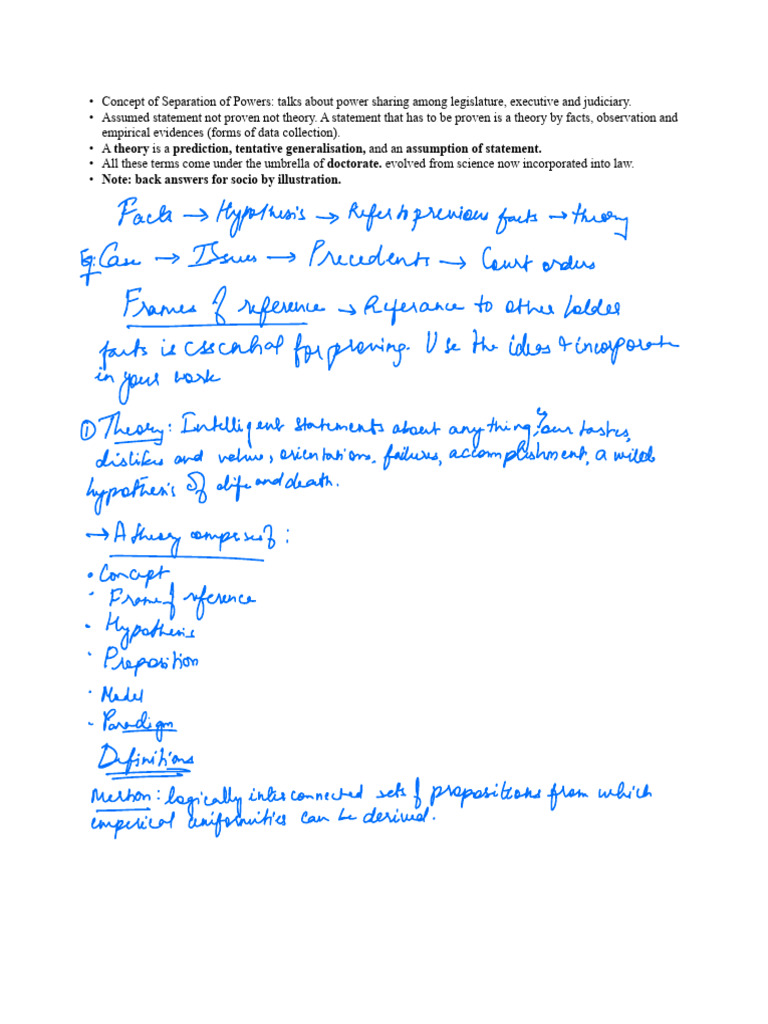 • Concept of Separation of Powers: talks about power sharing among legislature, executive and judiciary.
• Assumed statement not proven not theory. A statement that has to be proven is a theory by facts, observation and
empirical evidences (forms of data collection).
• A theory is a prediction, tentative generalisation, and an assumption of statement.
• All these terms come under the umbrella of doctorate. evolved from science now incorporated into law.
• Note: back answers for socio by illustration.
Facts → Hypothesis → Refer to previous facts → theory
Eg: Case → Issues → Precedents → Court orders
Frames of reference → Referance to other
facts is essential for proving. Use the ideas & incorporate
in your work
① Theory: Intelligent statements about anything: our tastes,
dislikes and value, orientations, failures, accomplishment, a wild
hypothesis of life and death.
→ A theory composes of:
• Concept
• Frame of reference
• Hypothesis
• Preposition
• Model
• Paradigm
Definitions
Merton: logically interconnected sets of propositions from which
emperical uniformities can be derived.